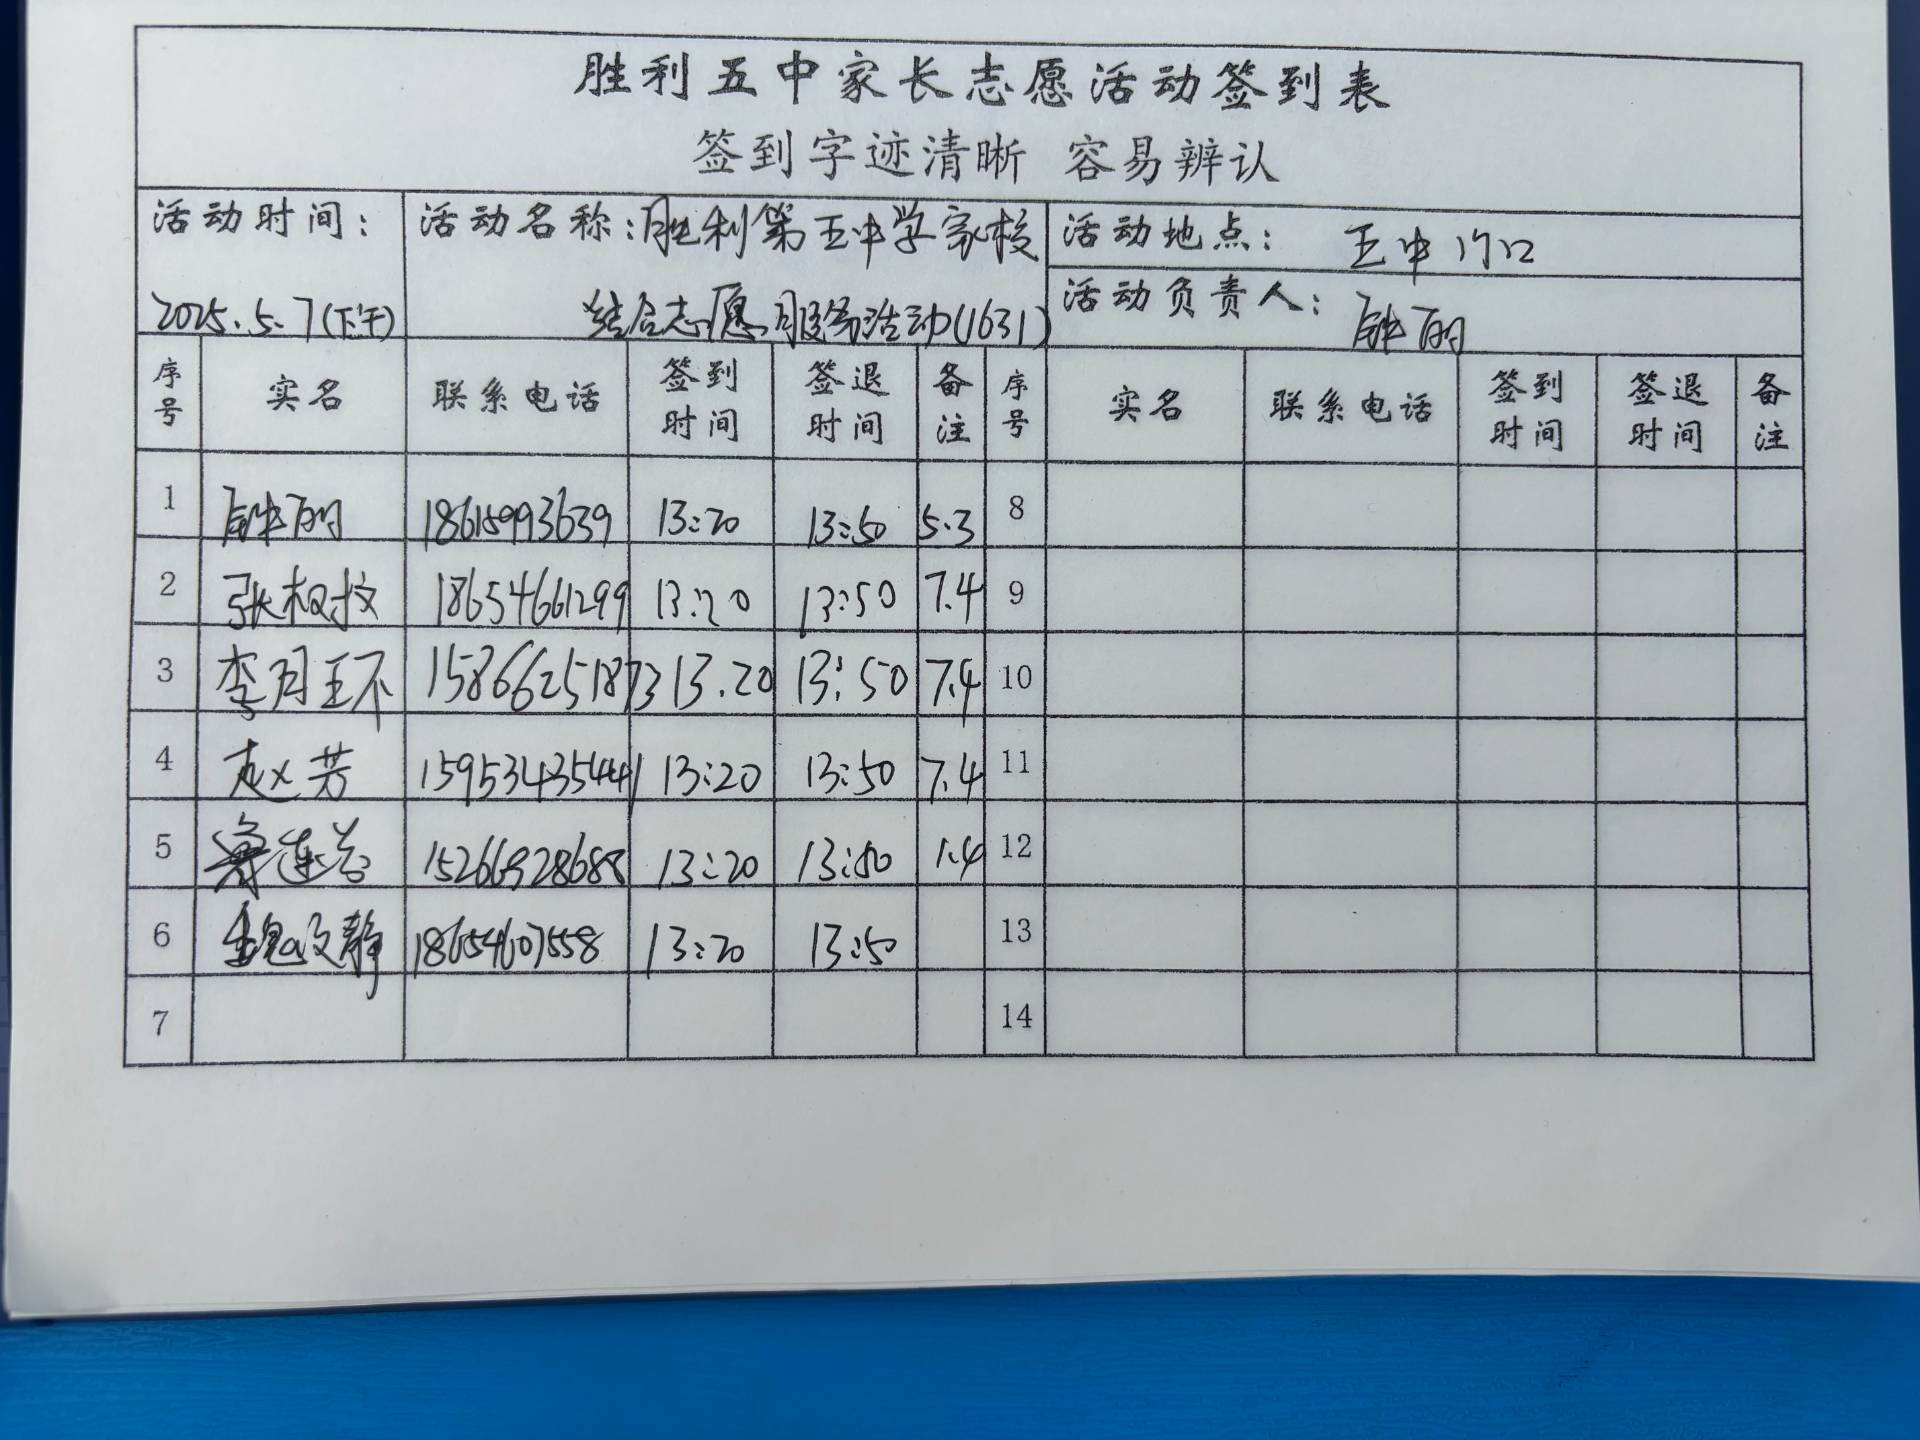 胜利五中家长志愿活动签到表
签到字迹清晰 容易辨认
活动时间: 2025.5.7(下午)
活动名称:胜利第五中学家校
结合志愿服务活动(1631)
活动地点: 五中门口
活动负责人: 钟丽
序号 实名 联系电话 签到时间 签退时间 备注 序号 实名 联系电话 签到时间 签退时间 备注
1 钟丽 18615993639 13:20 13:50 5.3 8
2 张 18654661299 13:20 13:50 7.4 9
3 李月 15866251873 13.20 13:50 7.4 10
4 赵芳 15953435441 13:20 13:50 7.4 11
5 连 15266928688 13:20 13:50 1.4 12
6 魏文静 18654607558 13:20 13:50 13
7 14